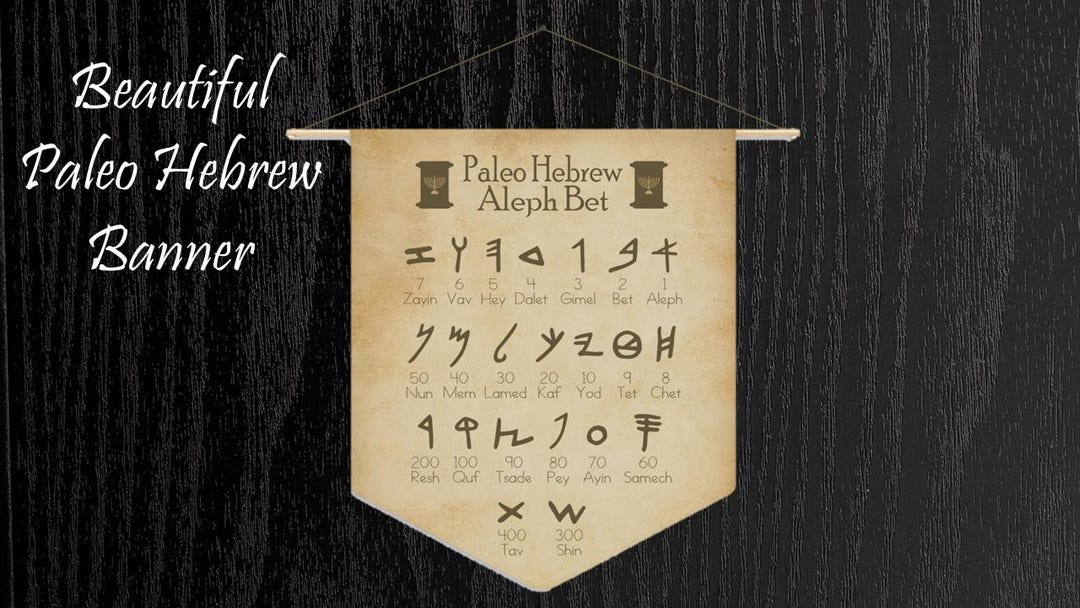 Beautiful
Paleo Hebrew
Banner
Paleo Hebrew
Aleph Bet
𐤀 𐤁 𐤂 𐤃 𐤄 𐤅 𐤆
7 6 5 4 3 2 1
Zayin Vav Hey Dalet Gimel Bet Aleph
𐤇 𐤈 𐤉 𐤊 𐤋 𐤌 𐤍
50 40 30 20 10 9 8
Nun Mem Lamed Kaf Yod Tet Chet
𐤎 𐤏 𐤐 𐤑 𐤒 𐤓
200 100 90 80 70 60
Resh Quf Tsade Pey Ayin Samech
𐤔 𐤕
400 300
Tav Shin